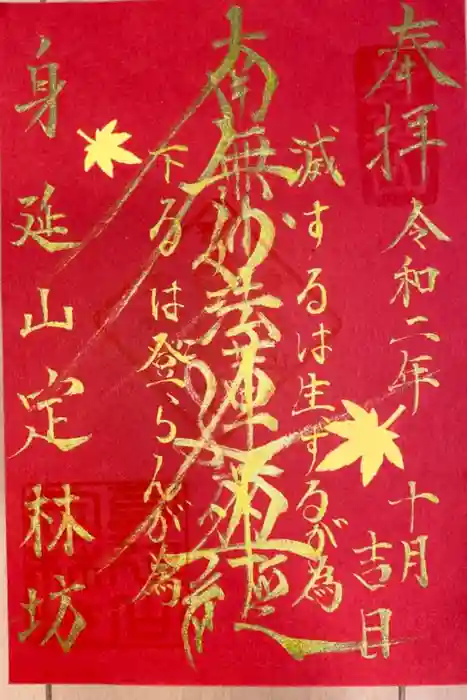 奉拝
令和二年
十月
吉日
滅するは生ずるが為
南無妙法蓮華経
下るは登らんが為
身延山定林坊